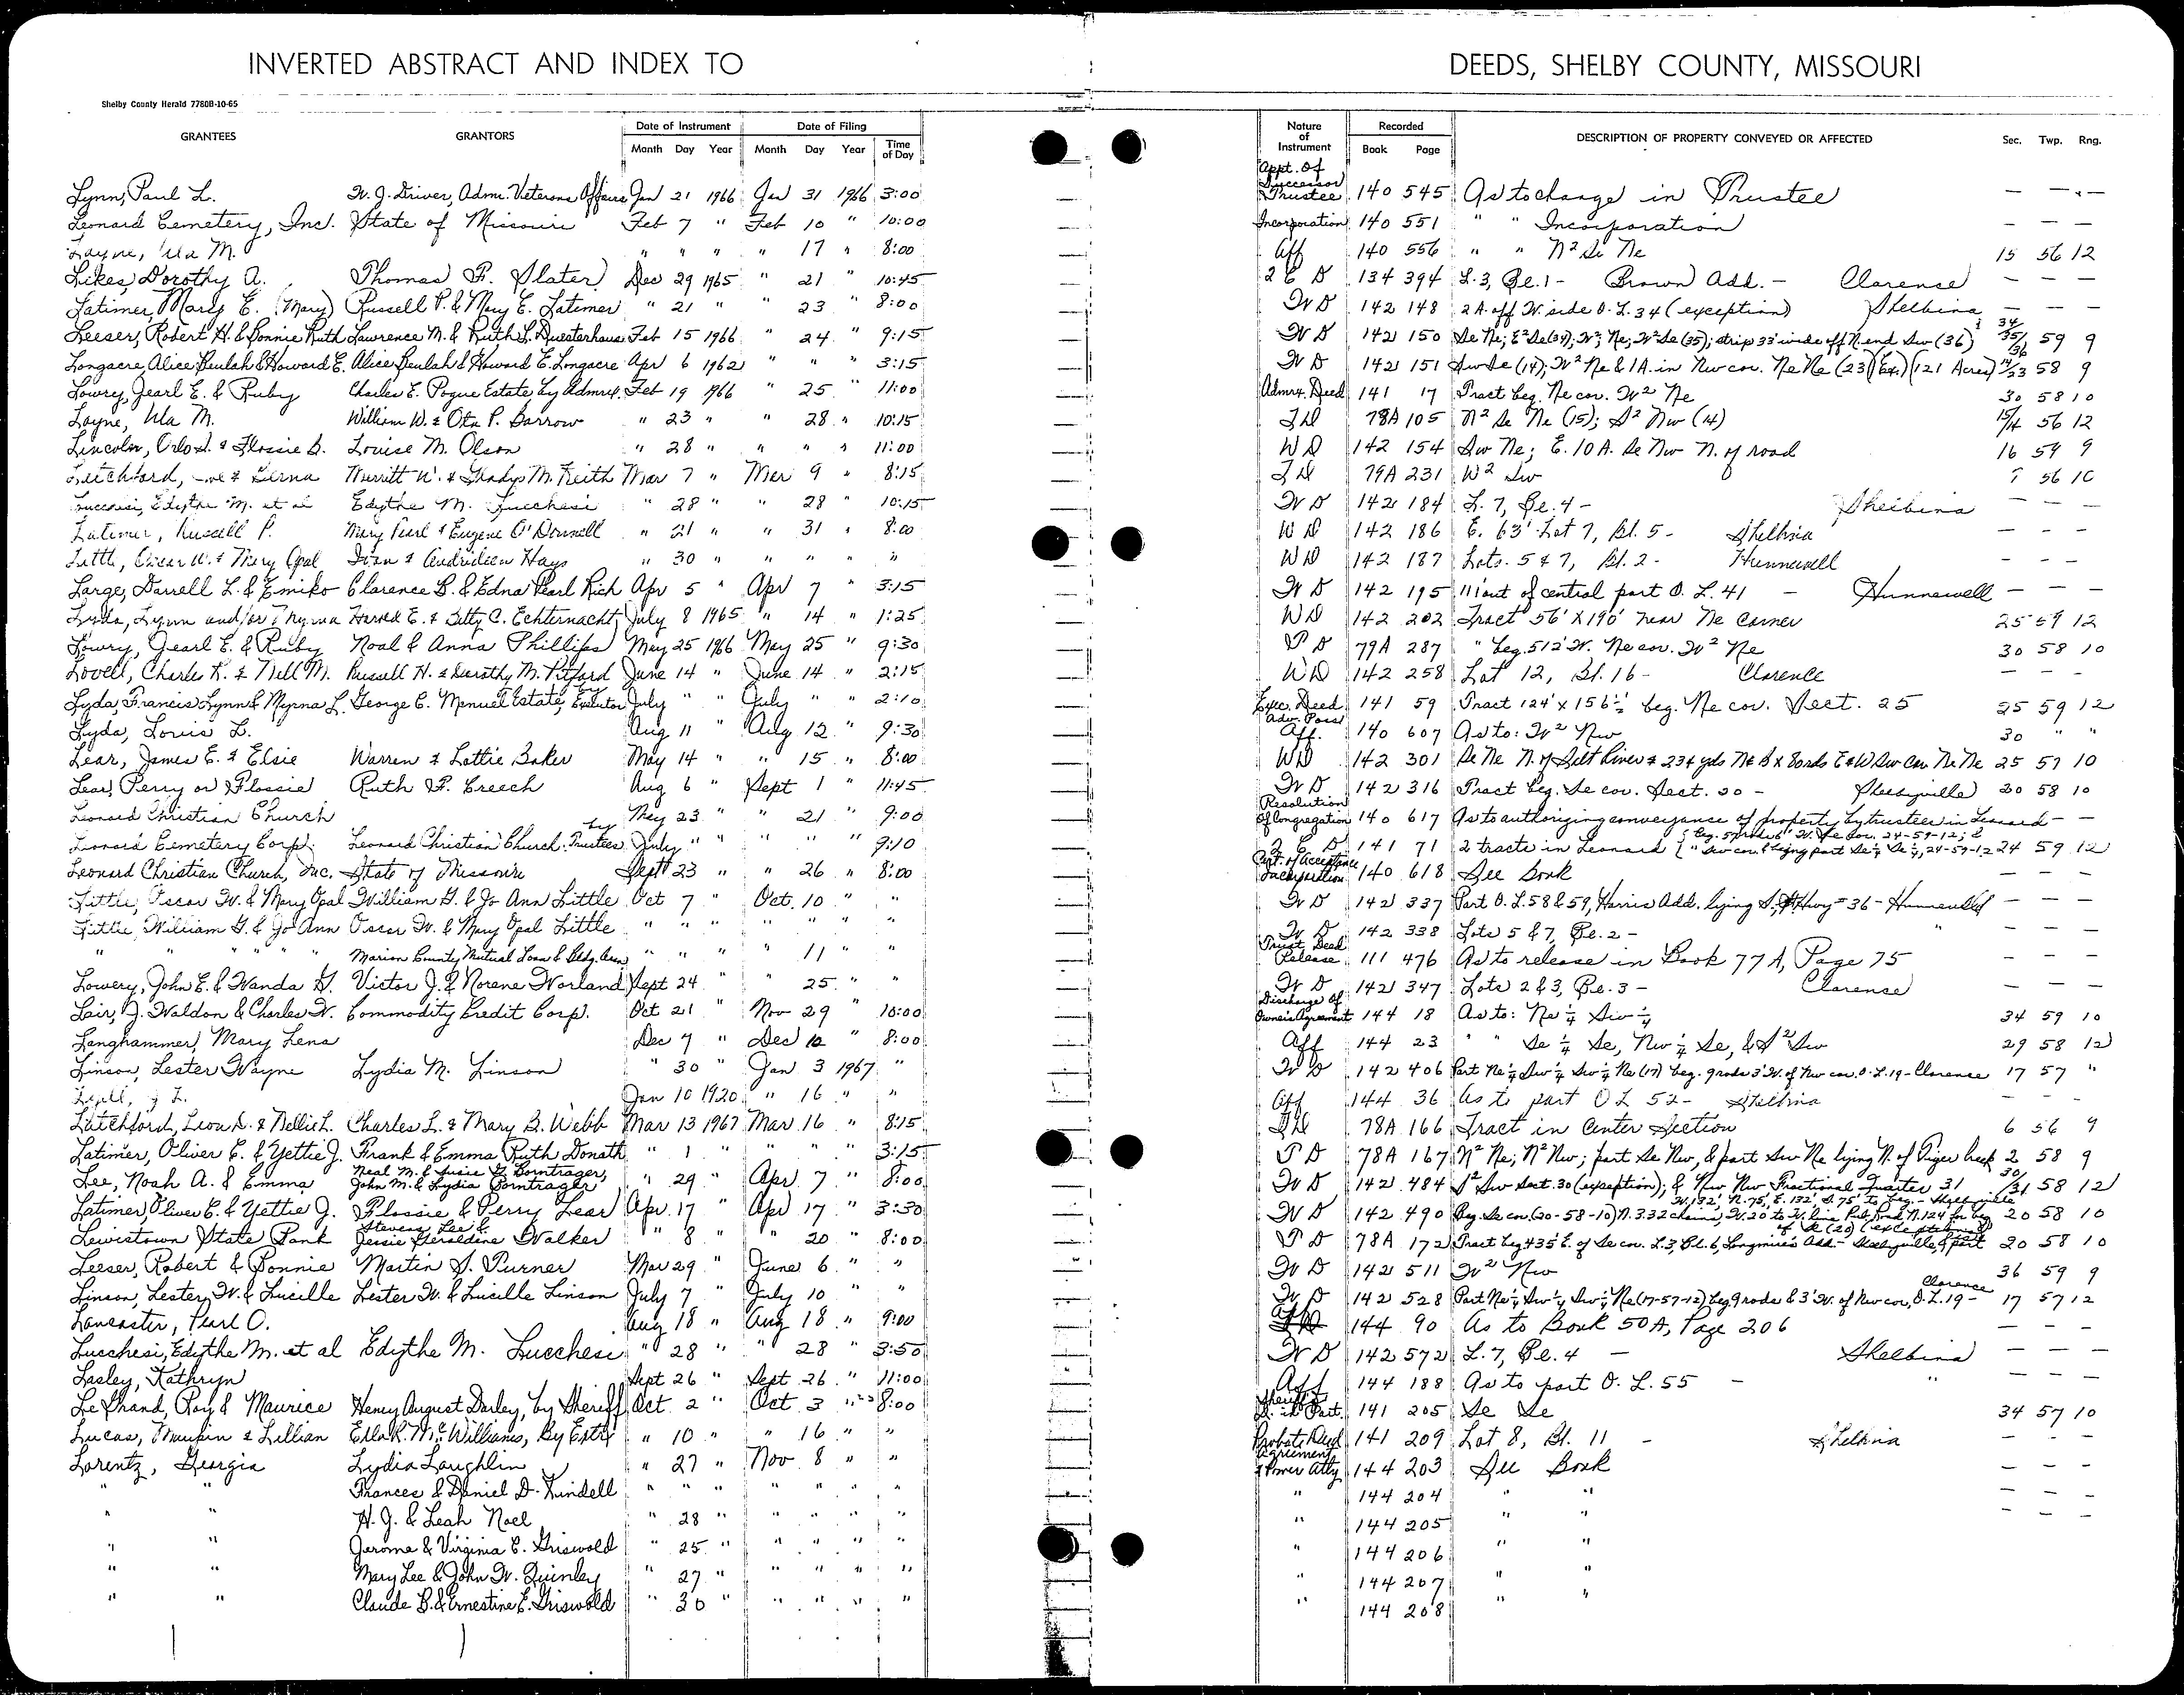 INVERTED ABSTRACT AND INDEX TO
DEEDS, SHELBY COUNTY, MISSOURI
Shelby County Herald 7780B-10-65
GRANTEES GRANTORS Date of Instrument Month Day Year Date of Filing Month Day Year Time of Day
Nature of Instrument Recorded Book Page DESCRIPTION OF PROPERTY CONVEYED OR AFFECTED Sec. Twp. Rng.
Lynn, Paul L. W. J. Driver, Adm. Veterans Affairs Jan 21 1966 Jan 31 1966 3:00 Appt. Of Successor Trustee 140 545 As to change in Trustee — — —
Leonard Cemetery, Inc. State of Missouri Feb 7 " Feb 10 " 10:00 Incorporation 140 551 " " Incorporation — — —
Layne, Ula M. " " " " 17 " 8:00 Aff 140 556 " " N² Se Ne 15 56 12
Likes, Dorothy A. Thomas F. Slater Dec 29 1965 " 21 " 10:45 2 C D 134 394 L. 3, Bl. 1 - Brown Add. - Clarence — — —
Latimer, Mary E. (Mary) Russell P. & Mary E. Latimer " 21 " " 23 " 8:00 W D 142 148 2 A. off W. side O. L. 34 (exception) Shelbina — — —
Leeser, Robert H. & Bonnie Ruth Lawrence M. & Ruth L. Duesterhaus Feb 15 1966 " 24 " 9:15 W D 142 150 Se Ne; E² Se (34); W² Ne; W² Se (35); strip 33' wide off N. end Sw (36) 34/35/36 59 9
Longacre, Alice Beulah & Howard E. Alice Beulah & Howard E. Longacre Apr 6 1962 " " " 3:15 W D 142 151 Sw Se (14); W² Ne & 1A. in Nw cor. Ne Ne (23) (Ex.) (121 Acres) 14/23 58 9
Lowry, Jearl E. & Ruby Charles E. Pogue Estate by Admrx. Feb 19 1966 " 25 " 11:00 Admrx. Deed 141 17 Tract beg. Ne cor. W² Ne 30 58 10
Layne, Ula M. William W. & Ota P. Barrow " 23 " " 28 " 10:15 T D 78A 105 N² Se Ne (15); S² Nw (14) 15/14 56 12
Lincoln, Orlo S. & Flossie B. Louise M. Olson " 28 " " " " 11:00 WD 142 154 Sw Ne; E. 10 A. Se Nw N. of road 16 59 9
Letchford, & Lerna Merritt W. & Gladys M. Keith Mar 7 " Mar 9 " 8:15 T D 79A 231 W² Sw 56 10
Lucchesi, Edythe M. et al Edythe M. Lucchesi " 28 " " 28 " 10:15 W D 142 184 L. 7, Bl. 4 - Shelbina — —
Latimer, Russell P. Mary Pearl & Eugene O'Donnell " 21 " " 31 " 8:00 WD 142 186 E. 63' Lot 7, Bl. 5 - Shelbina — — —
Little, Oscar W. & Mary Opal Ivan & Audrideen Hays " 30 " " " " " WD 142 187 Lots. 5 & 7, Bl. 2 - Hunnewell — — —
Large, Darrell L. & Emiko Clarence B. & Edna Pearl Rich Apr 5 " Apr 7 " 3:15 W D 142 195 111' out of central part O. L. 41 - Hunnewell — — —
Lyda, Lynn and/or Myrna Harold E. & Betty C. Echternacht July 8 1965 " 14 " 1:25 WD 142 202 Tract 56' X 190' near Ne Corner 25 59 12
Lowry, Jearl E. & Ruby Noal & Anna Phillips May 25 1966 May 25 " 9:30 T D 79A 287 " beg. 512' W. Ne cor. W² Ne 30 58 10
Lovell, Charles R. & Nell M. Russell H. & Dorothy M. Pitford June 14 " June 14 " 2:15 WD 142 258 Lot 12, Bl. 16 - Clarence — — -
Lyda, Francis Lynn & Myrna L. George C. Manuel Estate, by Executor July " " July " " 2:10 Exec. Deed 141 59 Tract 124' x 156½' beg. Ne cor. Sect. 25 25 59 12
Lyda, Louis L. Aug 11 " Aug 12 " 9:30 Adv. Poss. Aff. 140 607 As to: W² Nw 30 " "
Lear, James E. & Elsie Warren & Lottie Baker May 14 " " 15 " 8:00 WD 142 301 Se Ne N. of Salt River & 234 yds N&S x 80 rds E&W Sw Cor. Ne Ne 25 57 10
Lear, Perry or Flossie Ruth F. Creech Aug 6 " Sept 1 " 11:45 W D 142 316 Tract beg. Se cor. Sect. 20 - Shelbyville 20 58 10
Leonard Christian Church May 23 " " 21 " 9:00 Resolution Of Congregation 140 617 As to authorizing conveyance of property by trustees in Leonard — —
Leonard Cemetery Corp. Leonard Christian Church, by Trustees July " " " " " 9:10 2 C D 141 71 2 tracts in Leonard { beg. 57 rods 6' W. Se cor. 24-59-12; & " Sw cor. & lying part Se¼ Se¼, 24-59-12 24 59 12
Leonard Christian Church, Inc. State of Missouri Sept 23 " " 26 " 8:00 Cert. of Acceptance Incorporation 140 618 See Book — — —
Little, Oscar W. & Mary Opal William G. & Jo Ann Little Oct 7 " Oct. 10 " " W D 142 337 Part O. L. 58 & 59, Harris Add. lying S. of Hwy #36 - Hunnewell — — —
Little, William G. & Jo Ann Oscar W. & Mary Opal Little " " " " " " " W D 142 338 Lots 5 & 7, Bl. 2 - " — — —
" " " " Marion County Mutual Loan & Bldg. Assn " " " " 11 " " Trust Deed Release 111 476 As to release in Book 77A, Page 75 — — —
Lowery, John E. & Wanda G. Victor J. & Norene Worland Sept 24 " " 25 " " W D 142 347 Lots 2 & 3, Bl. 3 - Clarence — — —
Lair, J. Waldon & Charles W. Commodity Credit Corp. Oct 21 " Nov 29 " 10:00 Discharge Of Owner's Agreement 144 18 As to: Ne¼ Sw¼ 34 59 10
Langhammer, Mary Lena Dec 7 " Dec 12 " 8:00 Aff 144 23 " " Se¼ Se, Nw¼ Se, & S² Sw 29 58 12
Linson, Lester Wayne Lydia M. Linson " 30 " Jan 3 1967 " W D 142 406 Part Ne¼ Sw¼ Sw¼ Ne (17) beg. 9 rods 3' W. of Nw cor. O. L. 19 - Clarence 17 57 "
Jan 10 1920 " 16 " " Aff 144 36 As to part O L 52 - Shelbina — — —
Latchford, Leon D. & Nellie L. Charles L. & Mary B. Webb Mar 13 1967 Mar 16 " 8:15 T D 78A 166 Tract in Center Section 6 56 9
Latimer, Oliver C. & Yettie J. Frank & Emma Ruth Donath " 1 " " " " 3:15 T D 78A 167 N² Ne; N² Nw; part Se Nw, & part Sw Ne lying N. of Tiger Creek 2 58 9
Lee, Noah A. & Emma Neal M. & Susie G. Borntrager, John M. & Lydia Borntrager " 29 " Apr 7 " 8:00 W D 142 484 S² Sw Sect. 30 (exception); & Nw Nw Fractional Quarter 31 30/31 58 12
Latimer, Oliver C. & Yettie J. Flossie & Perry Lear Apr. 17 " Apr 17 " 3:30 W D 142 490 Beg. Se cor. (20-58-10) N. 3.32 chains, W. 20 to W. line N. 124' for beg. W. 132', N. 75', E. 132' S. 75' to beg. - Shelbyville 20 58 10
Lewistown State Bank Stevens Lee & Jessie Geraldine Walker " 8 " " 20 " 8:00 T D 78A 172 Tract beg 435' E. of Se cor. L. 3, Bl. 6, Longmire's Add. - Shelbyville, & part of Se (20) 20 58 10
Leeser, Robert & Bonnie Martin S. Turner Mar 29 " June 6 " " W D 142 511 W² Nw 36 59 9
Linson, Lester W. & Lucille Lester W. & Lucille Linson July 7 " July 10 " " W D 142 528 Part Ne¼ Sw¼ Sw¼ Ne (17-57-12) beg. 9 rods & 3' W. of Nw cor. O. L. 19 - Clarence 17 57 12
Lancaster, Pearl O. Aug 18 " Aug 18 " 9:00 Aff 144 90 As to Book 50A, Page 206 — — —
Lucchesi, Edythe M. et al Edythe M. Lucchesi " 28 " " 28 " 3:50 W D 142 572 L. 7, Bl. 4 - Shelbina — — —
Lasley, Kathryn Sept 26 " Sept 26 " 11:00 Aff 144 188 As to part O. L. 55 - " — — —
Le Grand, Roy & Maurice Henry August Darley, by Sheriff Oct. 2 " Oct. 3 " 8:00 Sheriff's D. in Part. 141 205 Se Se 34 57 10
Lucas, Maupin & Lillian Etta R. Mc Williams, By Extrx " 10 " " 16 " " Probate Deed 141 209 Lot 8, Bl. 11 - Shelbina — — —
Lorentz, Georgia Lydia Laughlin " 27 " Nov 8 " " Agreement & Power Atty 144 203 See Book — — —
" " Frances & Daniel D. Kindell " " " " " " " " 144 204 " " — — —
" " H. J. & Leah Noel " 28 " " " " " " 144 205 " " — — —
" " Jerome & Virginia C. Griswold " 25 " " " " " " 144 206 " "
" " Mary Lee & John W. Quinley " 27 " " " " " " 144 207 " "
" " Claude B. & Ernestine E. Griswold " 30 " " " " " " 144 208 " "